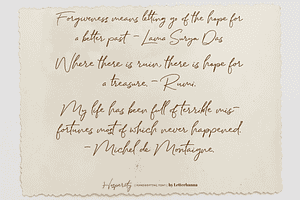 Forgiveness means letting go of the hope for
a better past - Lama Surya Das
Where there is ruin, there is hope for
a treasure. - Rumi.
My life has been full of terrible mis-
fortunes most of which never happened.
- Michel de Montaigne.
by Letterhanna